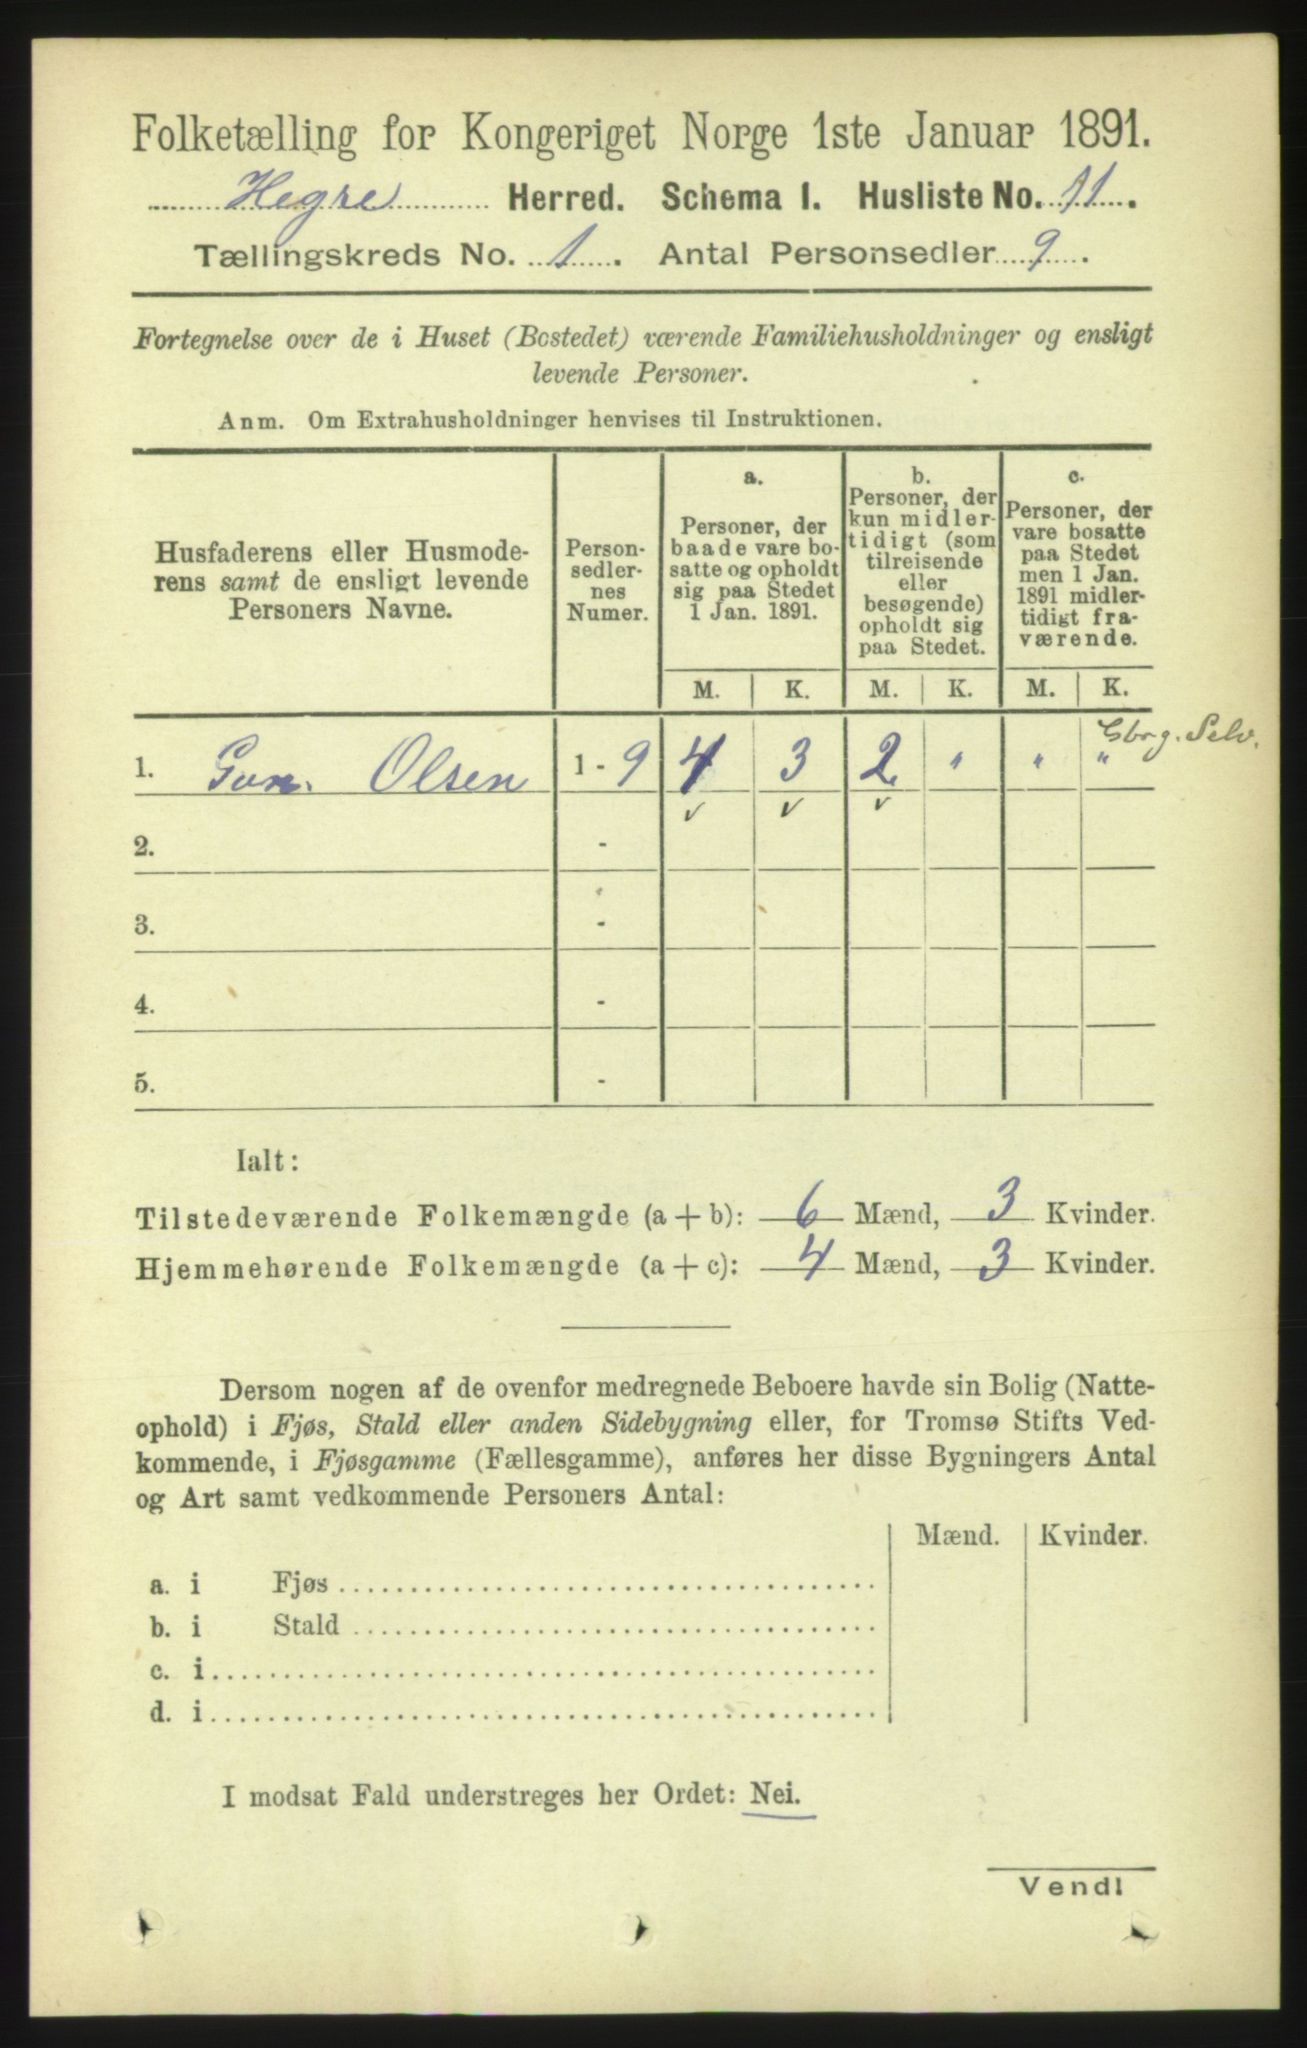 Folketælling for Kongeriget Norge 1ste Januar 1891.
Hegre Herred. Schema 1. Husliste No. 11.
Tællingskreds No. 1. Antal Personsedler 9.
Fortegnelse over de i Huset (Bostedet) værende Familiehusholdninger og ensligt
levende Personer.
Anm. Om Extrahusholdninger henvises til Instruktionen.
Husfaderens eller Husmode-
rens samt de ensligt levende
Personers Navne.
Person-
sedler-
nes
Numer.
a.
Personer, der
baade vare bo-
satte og opholdt
sig paa Stedet
1 Jan. 1891.
b.
Personer, der
kun midler-
tidigt (som
tilreisende
eller
besøgende)
opholdt sig
paa Stedet.
c.
Personer, der
vare bosatte
paa Stedet
men 1 Jan.
1891 midler-
tidigt fra-
værende.
M. K. M. K. M. K.
Gbrg. Selv.
1. Gun. Olsen 1 - 9 4 3 2 " " "
v v v
2. -
3. -
4. -
5. -
Ialt:
Tilstedeværende Folkemængde (a + b): 6 Mænd, 3 Kvinder.
Hjemmehørende Folkemængde (a + c): 4 Mænd, 3 Kvinder.
Dersom nogen af de ovenfor medregnede Beboere havde sin Bolig (Natte-
ophold) i Fjøs, Stald eller anden Sidebygning eller, for Tromsø Stifts Ved-
kommende, i Fjøsgamme (Fællesgamme), anføres her disse Bygningers Antal
og Art samt vedkommende Personers Antal:
Mænd. Kvinder.
a. i Fjøs
b. i Stald
c. i
d. i
I modsat Fald understreges her Ordet: Nei.
Vend!